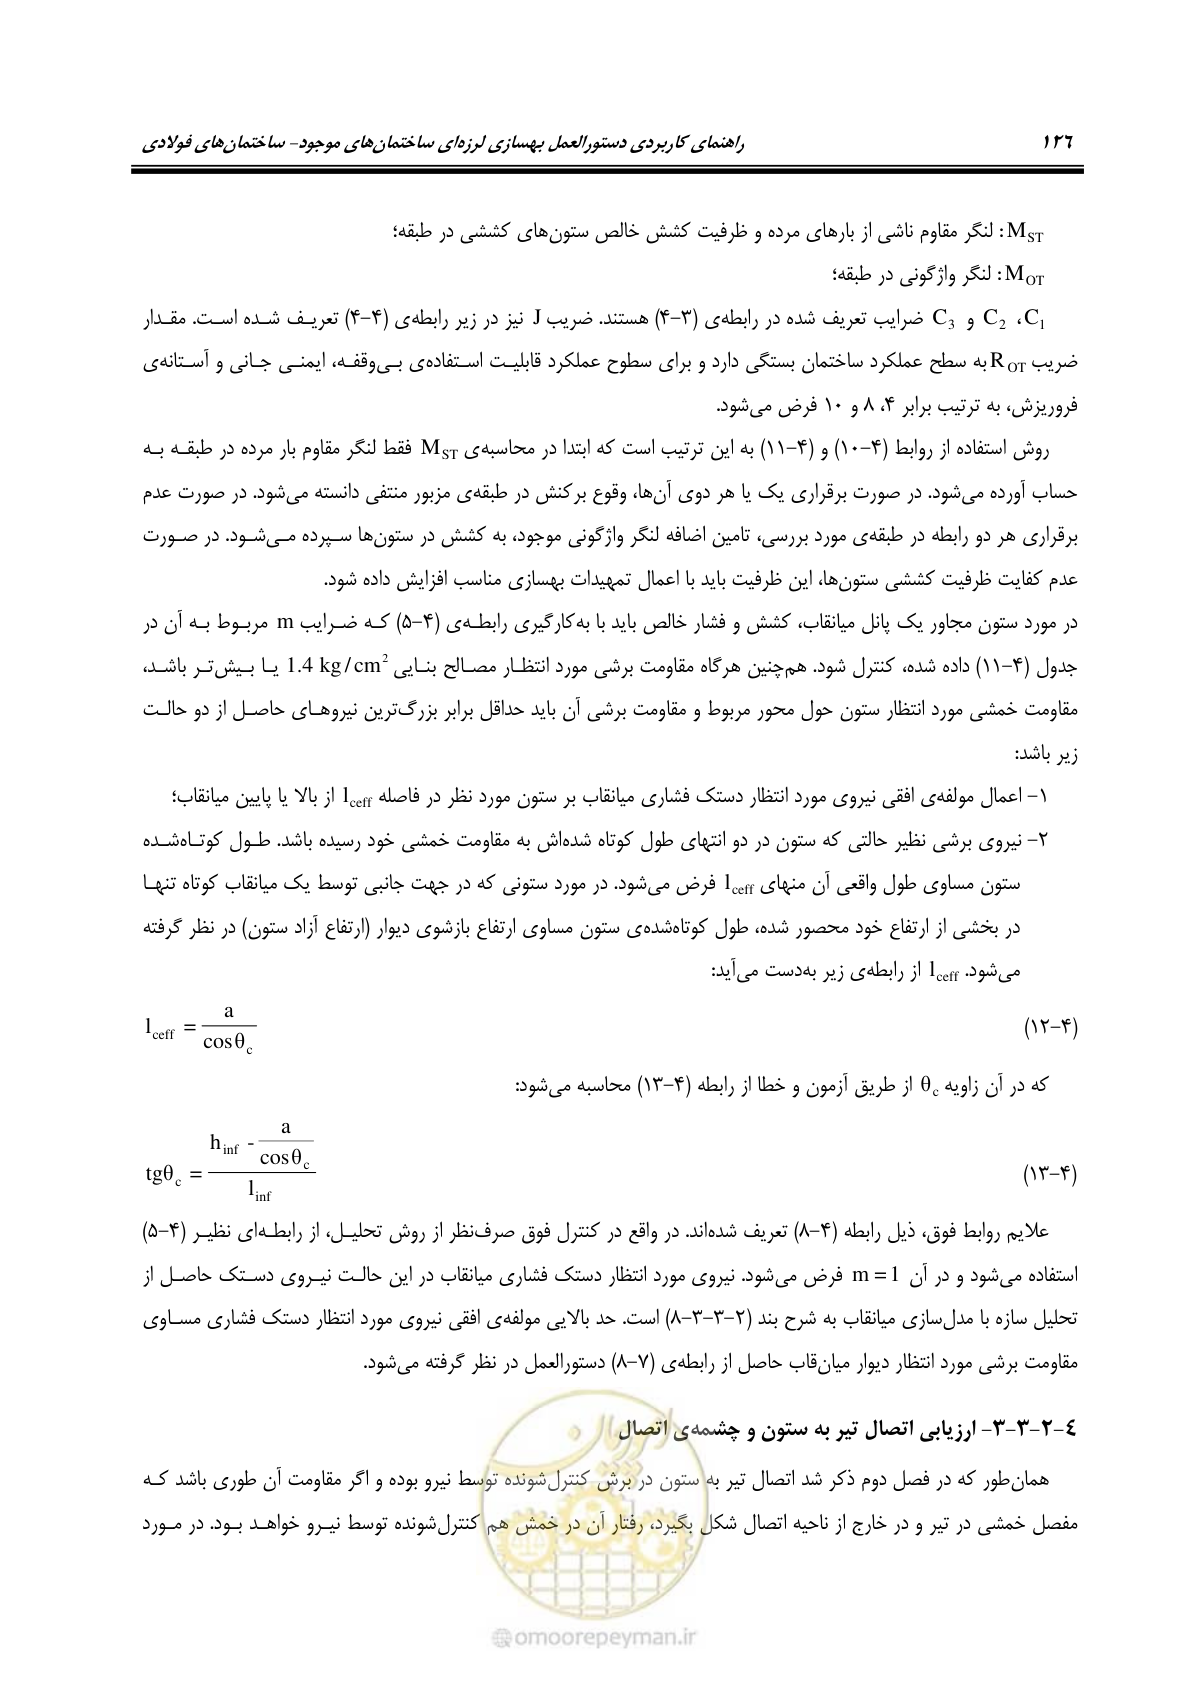 ۱۲۶ راهنمای کاربردی دستورالعمل بهسازی لرزه‌ای ساختمان‌های موجود- ساختمان‌های فولادی
M_ST: لنگر مقاوم ناشی از بارهای مرده و ظرفیت کشش خالص ستون‌های کششی در طبقه؛
M_OT: لنگر واژگونی در طبقه؛
C_1، C_2 و C_3 ضرایب تعریف شده در رابطه‌ی (۴-۳) هستند. ضریب J نیز در زیر رابطه‌ی (۴-۴) تعریف شده است. مقدار
ضریب R_OT به سطح عملکرد ساختمان بستگی دارد و برای سطوح عملکرد قابلیت استفاده‌ی بی‌وقفه، ایمنی جانی و آستانه‌ی
فروریزش، به ترتیب برابر ۴، ۸ و ۱۰ فرض می‌شود.
روش استفاده از روابط (۴-۱۰) و (۴-۱۱) به این ترتیب است که ابتدا در محاسبه‌ی M_ST فقط لنگر مقاوم بار مرده در طبقه به
حساب آورده می‌شود. در صورت برقراری یک یا هر دوی آن‌ها، وقوع برکنش در طبقه‌ی مزبور منتفی دانسته می‌شود. در صورت عدم
برقراری هر دو رابطه در طبقه‌ی مورد بررسی، تامین اضافه لنگر واژگونی موجود، به کشش در ستون‌ها سپرده می‌شود. در صورت
عدم کفایت ظرفیت کششی ستون‌ها، این ظرفیت باید با اعمال تمهیدات بهسازی مناسب افزایش داده شود.
در مورد ستون مجاور یک پانل میانقاب، کشش و فشار خالص باید با به‌کارگیری رابطه‌ی (۴-۵) که ضرایب m مربوط به آن در
جدول (۴-۱۱) داده شده، کنترل شود. هم‌چنین هرگاه مقاومت برشی مورد انتظار مصالح بنایی 1.4 kg/cm² یا بیش‌تر باشد،
مقاومت خمشی مورد انتظار ستون حول محور مربوط و مقاومت برشی آن باید حداقل برابر بزرگ‌ترین نیروهای حاصل از دو حالت
زیر باشد:
۱- اعمال مولفه‌ی افقی نیروی مورد انتظار دستک فشاری میانقاب بر ستون مورد نظر در فاصله l_ceff از بالا یا پایین میانقاب؛
۲- نیروی برشی نظیر حالتی که ستون در دو انتهای طول کوتاه شده‌اش به مقاومت خمشی خود رسیده باشد. طول کوتاه‌شده
ستون مساوی طول واقعی آن منهای l_ceff فرض می‌شود. در مورد ستونی که در جهت جانبی توسط یک میانقاب کوتاه تنها
در بخشی از ارتفاع خود محصور شده، طول کوتاه‌شده‌ی ستون مساوی ارتفاع بازشوی دیوار (ارتفاع آزاد ستون) در نظر گرفته
می‌شود. l_ceff از رابطه‌ی زیر به‌دست می‌آید:
(۴-۱۲) l_ceff = a / cosθ_c
که در آن زاویه θ_c از طریق آزمون و خطا از رابطه (۴-۱۳) محاسبه می‌شود:
(۴-۱۳) tgθ_c = (h_inf - a / cosθ_c) / l_inf
علایم روابط فوق، ذیل رابطه (۴-۸) تعریف شده‌اند. در واقع در کنترل فوق صرف‌نظر از روش تحلیل، از رابطه‌ای نظیر (۴-۵)
استفاده می‌شود و در آن m = 1 فرض می‌شود. نیروی مورد انتظار دستک فشاری میانقاب در این حالت نیروی دستک حاصل از
تحلیل سازه با مدل‌سازی میانقاب به شرح بند (۲-۳-۳-۸) است. حد بالایی مولفه‌ی افقی نیروی مورد انتظار دستک فشاری مساوی
مقاومت برشی مورد انتظار دیوار میان‌قاب حاصل از رابطه‌ی (۷-۸) دستورالعمل در نظر گرفته می‌شود.
۴-۲-۳-۳- ارزیابی اتصال تیر به ستون و چشمه‌ی اتصال
همان‌طور که در فصل دوم ذکر شد اتصال تیر به ستون در برش کنترل‌شونده توسط نیرو بوده و اگر مقاومت آن طوری باشد که
مفصل خمشی در تیر و در خارج از ناحیه اتصال شکل بگیرد، رفتار آن در خمش هم کنترل‌شونده توسط نیرو خواهد بود. در مورد
امور پیمان
@omoorepeyman.ir